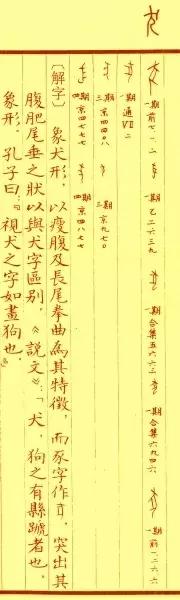 一期前七.一.二 一期乙二六三九 一期合集五六六三 一期合集六九四六 一期前一.二六.六
一期通Ⅶ二
三期京四四〇八
四期京四七七七 四期京四八七七
〔解字〕象犬形，以瘦腹及長尾拳曲為其特徵，而豕字作，突出其
腹肥尾垂之狀以與犬字區別。《說文》：「犬，狗之有縣蹏者也。
象形。孔子曰：『視犬之字如畫狗也。』」